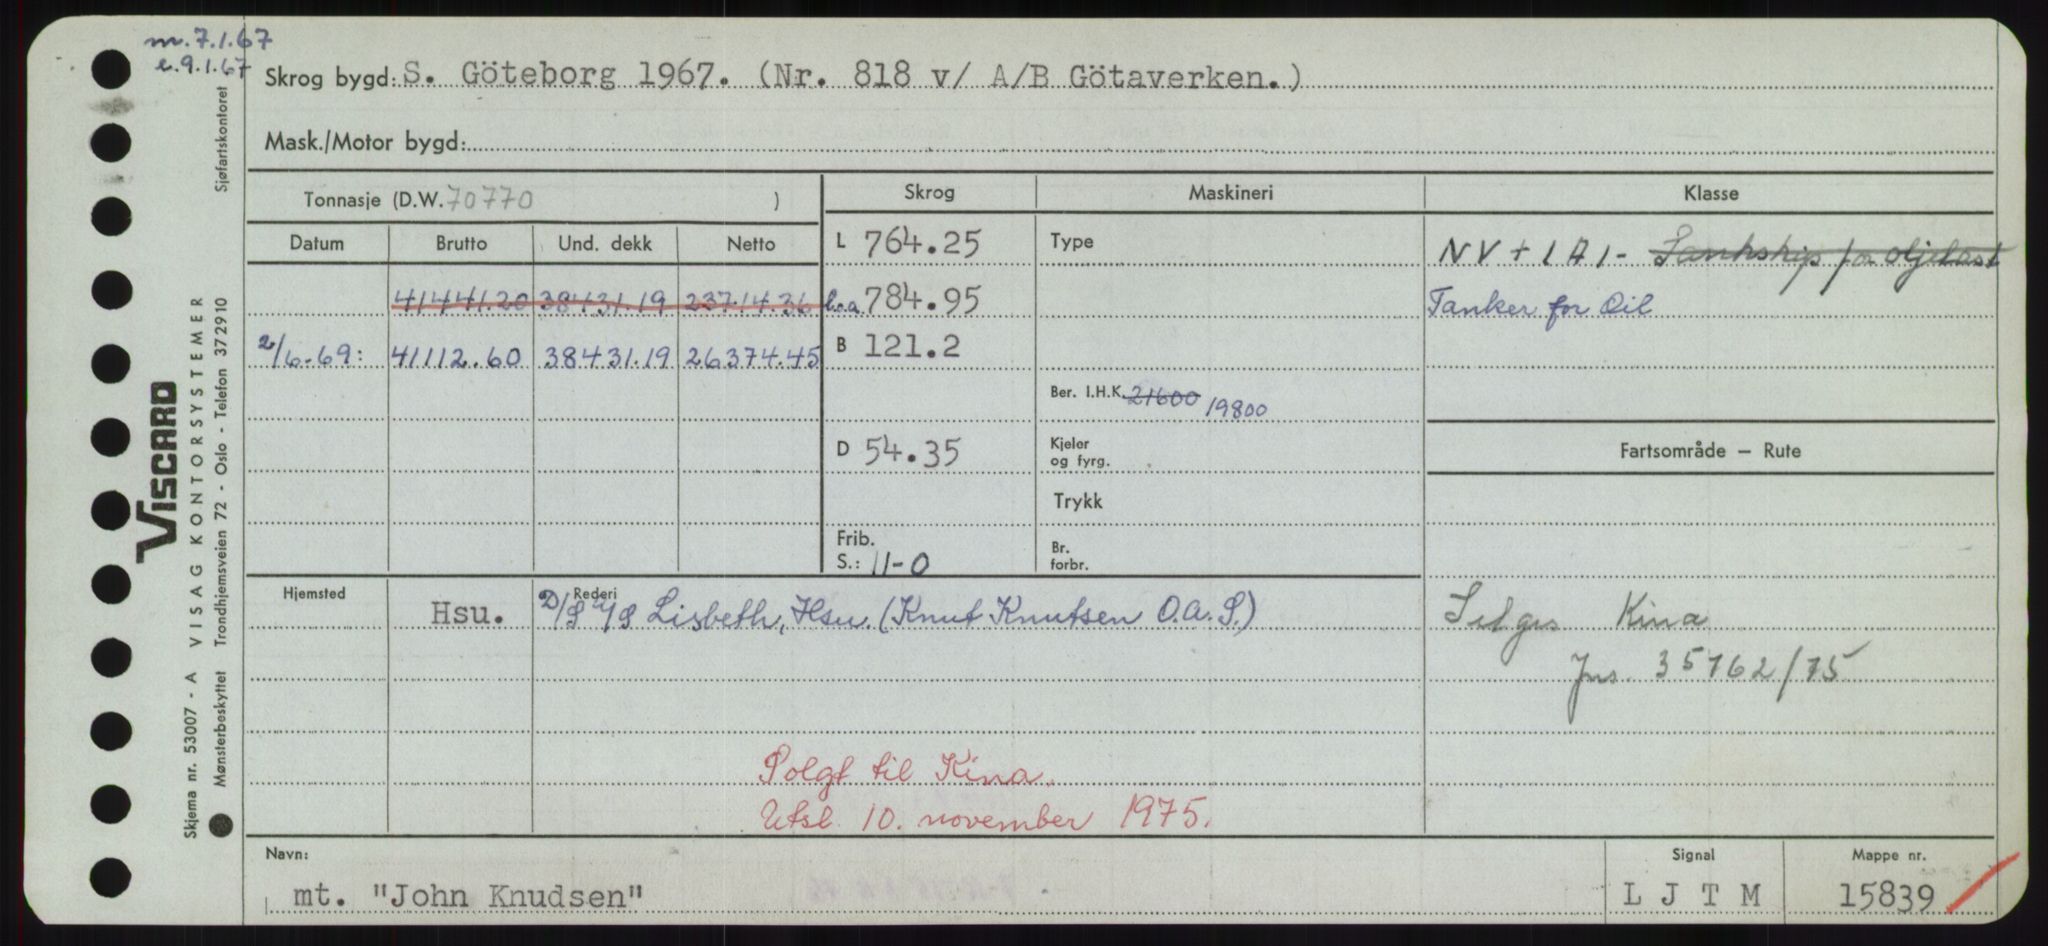 m. 7.1.67
e. 9.1.67
Skrog bygd: S. Göteborg 1967. (Nr. 818 v/ A/B Götaverken.)
Mask./Motor bygd:
Tonnasje (D.W. 70770 )
Skrog
Maskineri
Klasse
Datum
Brutto
Und. dekk
Netto
L 764.25
Type
NV + 1A1 - Tankskip for oljelast
41441.20 38431.19 23714.36
l.o.a. 784.95
Tanker for Oil
2/6-69: 41112.60 38431.19 26374.45
B 121.2
Ber. I.H.K. 21600 19800
D 54.35
Kjeler
og fyrg.
Fartsområde – Rute
Trykk
Frib.
S.: 11-0
Br.
forbr.
Hjemsted
Hsu.
Rederi
D/S A/S Lisbeth, Hsu. (Knut Knutsen O.A.S.)
Selges Kina
Jns. 35762/75
Solgt til Kina.
Utsl. 10. november 1975.
Navn:
mt. "John Knudsen"
Signal
L J T M
Mappe nr.
15839
Skjema nr. 53007 - A VISAG KONTORSYSTEMER
VISCARD
Mønsterbeskyttet Trondhjemsveien 72 - Oslo - Telefon 372910 Sjøfartskontoret